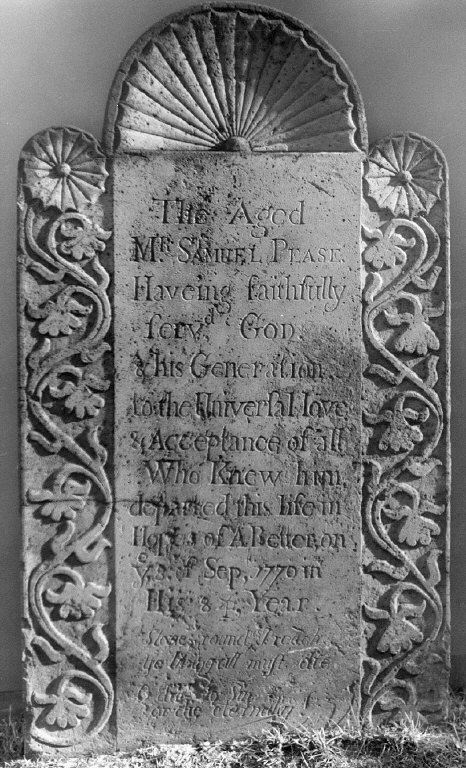 The Aged
Mr. Samuel Pease.
Haveing faithfully
ſerv,d God,
& his Generation
to the Univerſal Love
& Acceptance of all
Who Knew him,
departed this life in
Hopes of A Better, on
ye, 3, of Sep, 1770 in
His 84, Year.
round
must die
for the eternity